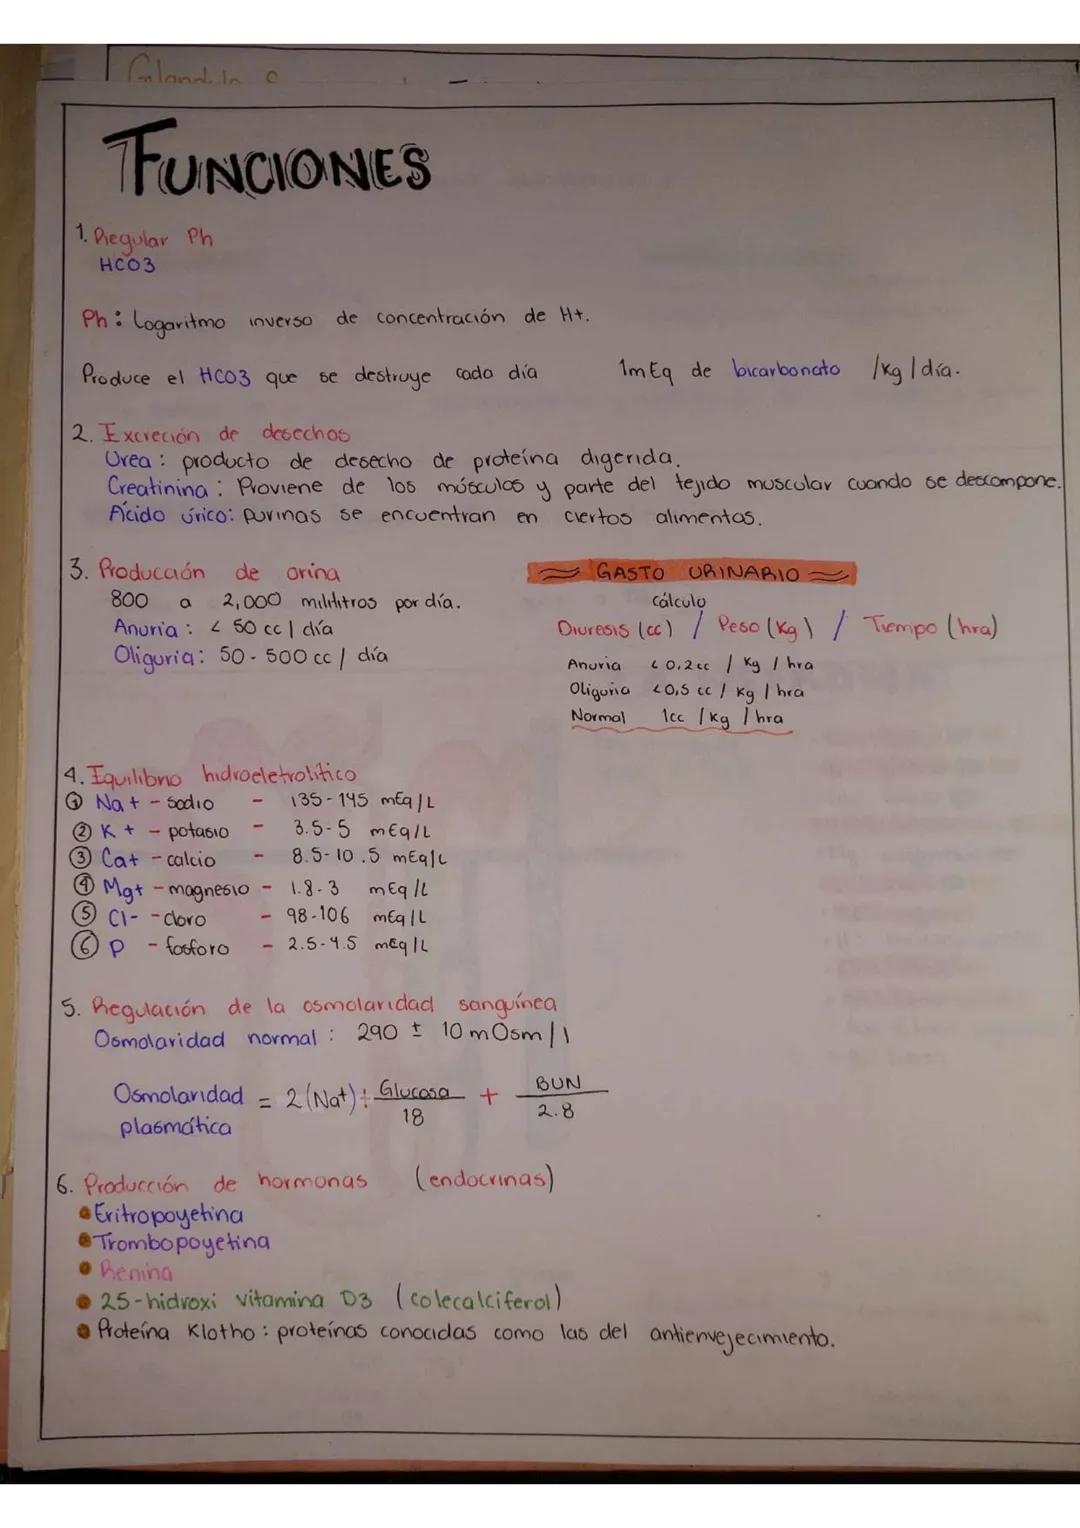 Glandula
FUNCIONES
1. Regular Ph
HCO3
Ph: Logaritmo inverso de concentración de H+.
Produce el HCO3 que se destruye cada día 1mEq de bicarbonato /kg/día.
2. Excreción de desechos
Urea: producto de desecho de proteína digerida.
Creatinina: Proviene de los músculos y parte del tejido muscular cuando se descompone.
Ácido úrico: purinas se encuentran en ciertos alimentos.
3. Producción de orina
800 a 2,000 mililitros por día.
Anuria: < 50 cc/día
Oliguria: 50-500 cc/día
GASTO URINARIO
cálculo
Diuresis (cc) / Peso (Kg) / Tiempo (hra)
Anuria <0,2cc / Kg / hra
Oliguria <0,5 cc / Kg / hra
Normal 1cc /Kg /hra
4. Equilibrio hidroeletrolítico
① Na+ - sodio - 135-145 mEq/L
② K+ - potasio - 3.5-5 mEq/L
③ Ca+ - calcio - 8.5-10.5 mEq/L
④ Mg+ - magnesio - 1.8-3 mEq/L
⑤ Cl- - cloro - 98-106 mEq/L
⑥ P - fosforo - 2.5-4.5 mEq/L
5. Regulación de la osmolaridad sanguínea
Osmolaridad normal: 290 ± 10 mOsm/l
Osmolaridad plasmática = 2(Na+) ÷ Glucosa/18 + BUN/2.8
6. Producción de hormonas (endocrinas)
• Eritropoyetina
• Trombopoyetina
• Renina
• 25-hidroxi vitamina D3 (colecalciferol)
• Proteína Klotho: proteínas conocidas como las del antienvejecimiento.